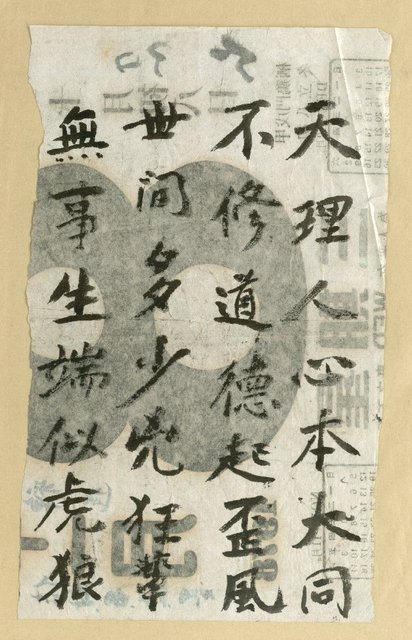 天理人心本大同
不修道德起歪風
世間多少兇狂輩
無事生端似虎狼